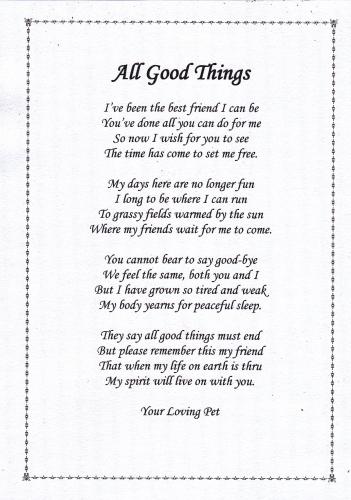 All Good Things
I've been the best friend I can be
You've done all you can do for me
So now I wish for you to see
The time has come to set me free.
My days here are no longer fun
I long to be where I can run
To grassy fields warmed by the sun
Where my friends wait for me to come.
You cannot bear to say good-bye
We feel the same, both you and I
But I have grown so tired and weak
My body yearns for peaceful sleep.
They say all good things must end
But please remember this my friend
That when my life on earth is thru
My spirit will live on with you.
Your Loving Pet